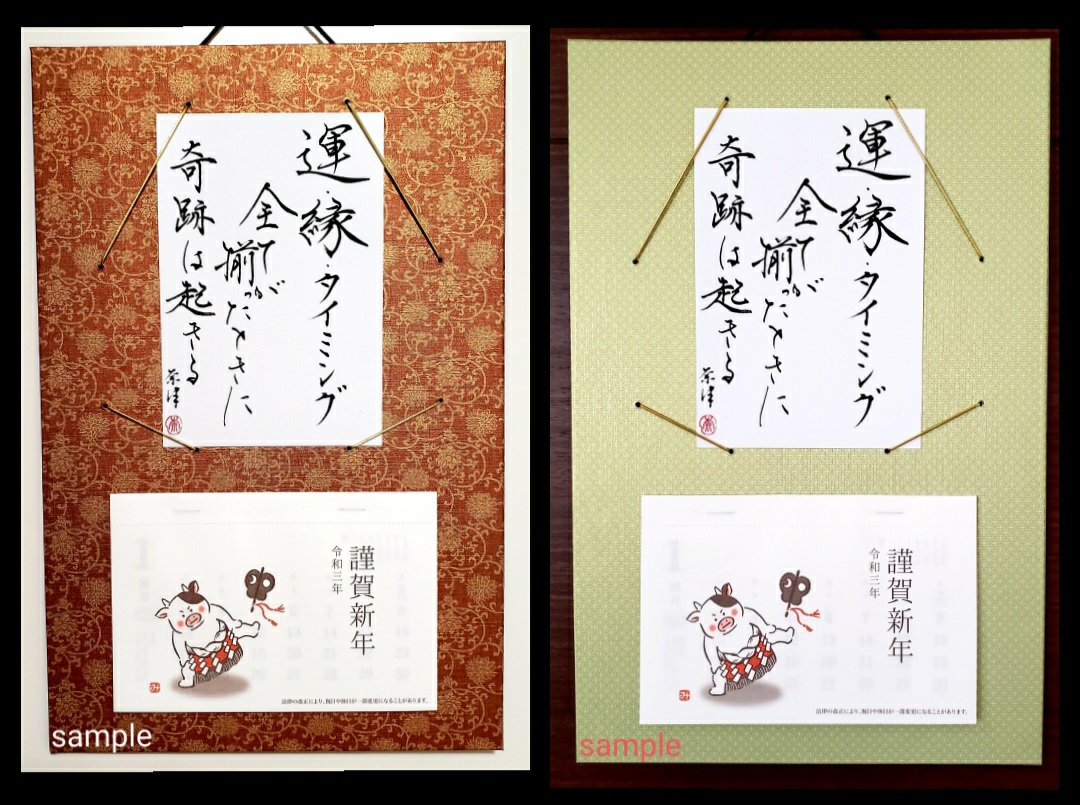 運・縁・タイミング
全てが
揃ったときに
奇跡は起きる
謹賀新年
令和三年
み
法律の改正により、祝日や休日が一部変更になることがあります。
sample
運・縁・タイミング
全てが
揃ったときに
奇跡は起きる
謹賀新年
令和三年
み
法律の改正により、祝日や休日が一部変更になることがあります。
sample